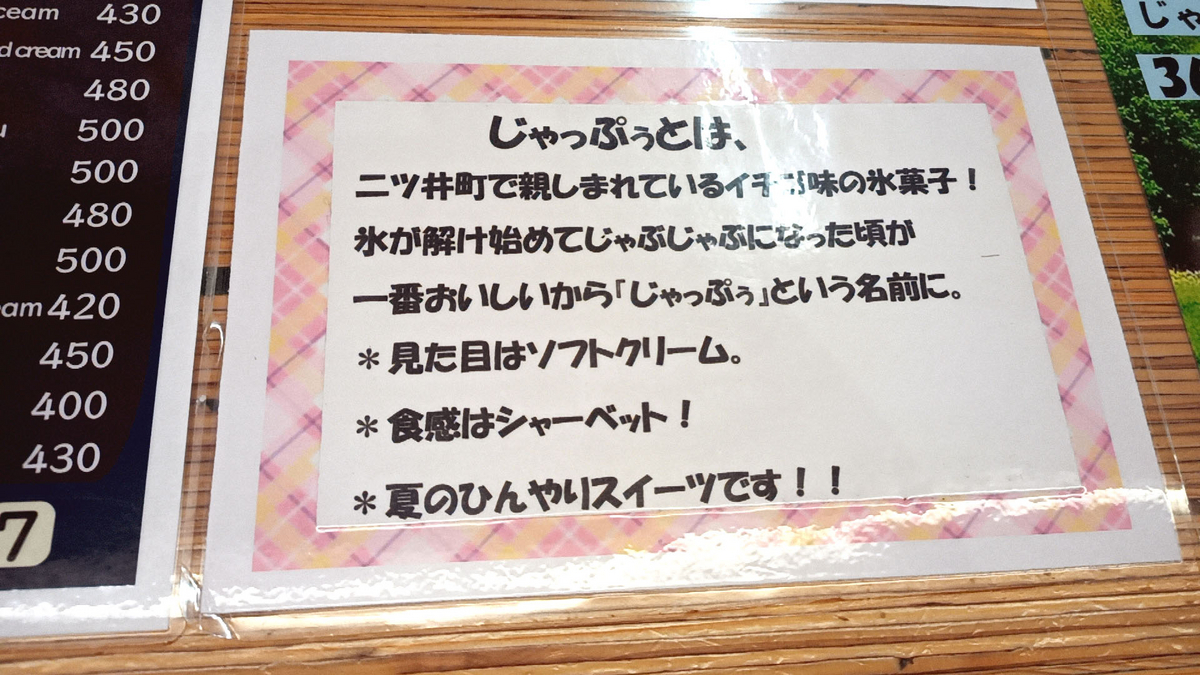 ceam 430
d cream 450
480
500
500
480
500
eam 420
450
400
430
7
じゃっぷぅとは、
二ツ井町で親しまれているイチゴ味の氷菓子！
氷が解け始めてじゃぶじゃぶになった頃が
一番おいしいから「じゃっぷぅ」という名前に。
＊見た目はソフトクリーム。
＊食感はシャーベット！
＊夏のひんやりスイーツです！！
じゃ